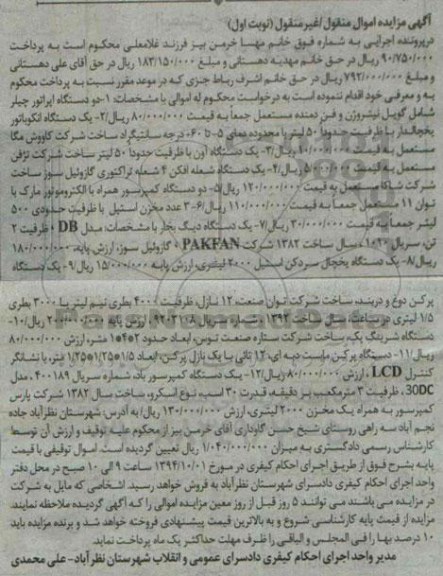 آگهی مزایده اموال منقول/غیرمنقول (نوبت اول)
درپرونده اجرایی به شماره فوق خانم مهسا خرمن بیز فرزند غلامعلی محکوم است به پرداخت
۹۰/۷۵۰/۰۰۰ ریال در حق خانم مهدیه دهستانی و مبلغ ۱۸۳/۱۵۰/۰۰۰ ریال در حق آقای علی دهستانی
و مبلغ ۷۹۲/۰۰۰/۰۰۰ ریال در حق خانم اشرف رباط جزی که در موعد مقرر نسبت به پرداخت محکوم
به و معرفی خود اقدام ننموده است به درخواست محکوم له اموالی با مشخصات: ۱-دو دستگاه اپراتور چیلر
شامل گویل نیشروژن و فن دمنده مستعمل جمعا به قیمت ۸۰/۰۰۰/۰۰۰ ریال/۲- یک دستگاه انکوباتور
یخچالدار با ظرفیت حدودا ۵۰ لیتر با محدوده دمای ۵- تا ۶۰+ درجه سانتیگراد ساخت شرکت کاووش مگا
مستعمل به قیمت ۱۰/۰۰۰/۰۰۰ ریال/۳- یک دستگاه آون با ظرفیت حدودا ۵۰ لیتر ساخت شرکت
مستعمل به قیمت ۵/۰۰۰/۰۰۰ ریال/۴- یک دستگاه شعله افکن ۴ شعله تراکتوری گازوئیل سوز ساخت
شرکت شاکا مستعمل به قیمت ۱۲۰/۰۰۰/۰۰۰ ریال/۵- دو دستگاه کمپرسور همراه با الکتروموتور مارک با
توان ۱۱ مستعمل جمعا به قیمت ۱۱۰/۰۰۰/۰۰۰ ریال/۶- ۳ عدد مخزن استیل با ظرفیت حدودی ۵۰۰
لیتر جمعا به قیمت ۳۰/۰۰۰/۰۰۰ ریال/۷- یک دستگاه دیگ بخار با مشخصات: مدل DB ۶ ظرفیت ۲
تن، سریال ۱۰۹۰، سال ساخت ۱۳۸۲ شرکت PAKFAN گازوئیل سوز، ارزش پایه ۱۸۰/۰۰۰/۰۰۰
ریال/۸- یک دستگاه یخچال سردکن استیل ۲۰۰۰ لیتری، ارزش پایه ۱۵/۰۰۰/۰۰۰ ریال/۹- یک دستگاه
پرکن دوغ و دربند، ساخت شرکت توان صنعت ۱۲ نازل، ظرفیت ۴۰۰۰ بطری نیم لیتر یا ۳۰۰۰ بطری
۱/۵ لیتری در ساعت سال ساخت ۱۳۹۲، شماره سریال ۹۲۰۳۱۰۸ ارزش پایه ۲۰۰/۰۰۰/۰۰۰ ریال/۱۰-
دستگاه شرینگ پک، ساخت شرکت ستاره صنعت توس، ابعاد حدود ۲*۴*۱ متر، ارزش ۸۰/۰۰۰/۰۰۰
ریال/۱۱- دستگاه پرکن ماست دبه ای، ۱۲ تایی با یک نازل پرکن، ابعاد ۱/۵*۱/۲۵*۱/۲۵ متر، با نشانگر
کنترل LCD، ارزش ۸۰/۰۰۰/۰۰۰ ریال/۱۲- یک دستگاه کمپرسور باد، شماره سریال ۴۰۰۱۸۹، مدل
30DC، ظرفیت ۳ مترمکعب بر دقیقه، قدرت ۳۰ اسب، نوع اسکرو، ساخت سال ۱۳۸۲ شرکت پارس
کمپرسور به همراه یک مخزن ۲۰۰۰ لیتری، ارزش ۱۳۰/۰۰۰/۰۰۰ ریال/ به آدرس: شهرستان نظرآباد جاده
نجم آباد سه راهی روستای شیخ حسن گاوداری آقای خرمن بیز از محکوم علیه توقیف و ارزش آن توسط
کارشناس رسمی دادگستری به میزان ۱/۰۴۰/۰۰۰/۰۰۰ ریال تعیین گردیده است. اموال توقیفی با قیمت
پایه بشرح فوق از طریق اجرای احکام کیفری در مورخ ۱۳۹۴/۱۰/۰۱ ساعت ۹ الی ۱۰ صبح در محل دفتر
واحد اجرای احکام کیفری دادسرای شهرستان نظرآباد به فروش خواهد رسید اشخاصی که مایل به شرکت
در مزایده می باشند می توانند ۵ روز قبل از روز معین مزایده اموالی را که آگهی گردیده ملاحظه نمایند.
مزایده از قیمت پایه کارشناسی شروع و به بالاترین قیمت پیشنهادی فروخته خواهد شد و برنده مزایده باید
۱۰ درصد بها را فی المجلس و الباقی را ظرف مهلت حداکثر یک ماه پرداخت نماید.
مدیر واحد اجرای احکام کیفری دادسرای عمومی و انقلاب شهرستان نظرآباد- علی محمدی